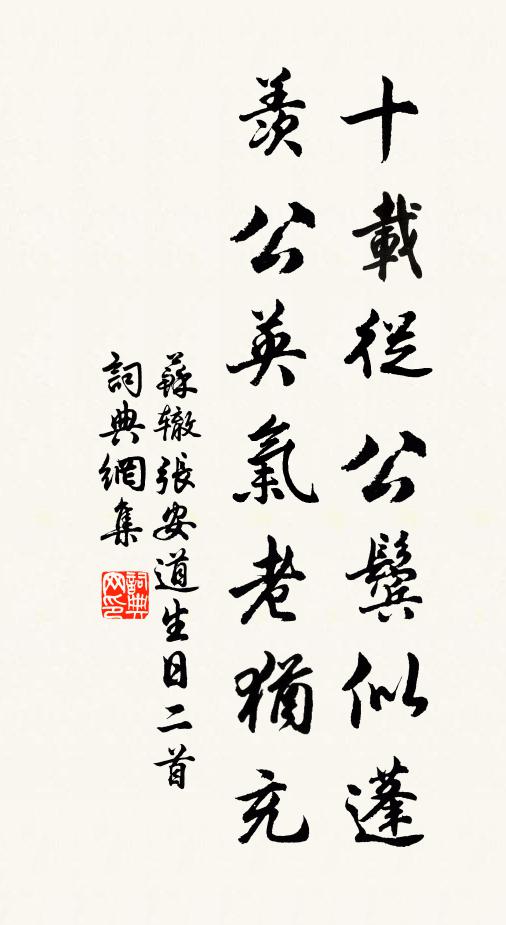 十載從公鬢似蓬
羨公英氣老猶充
蘇辙張安道生日二首
詞典網集
詞典网印